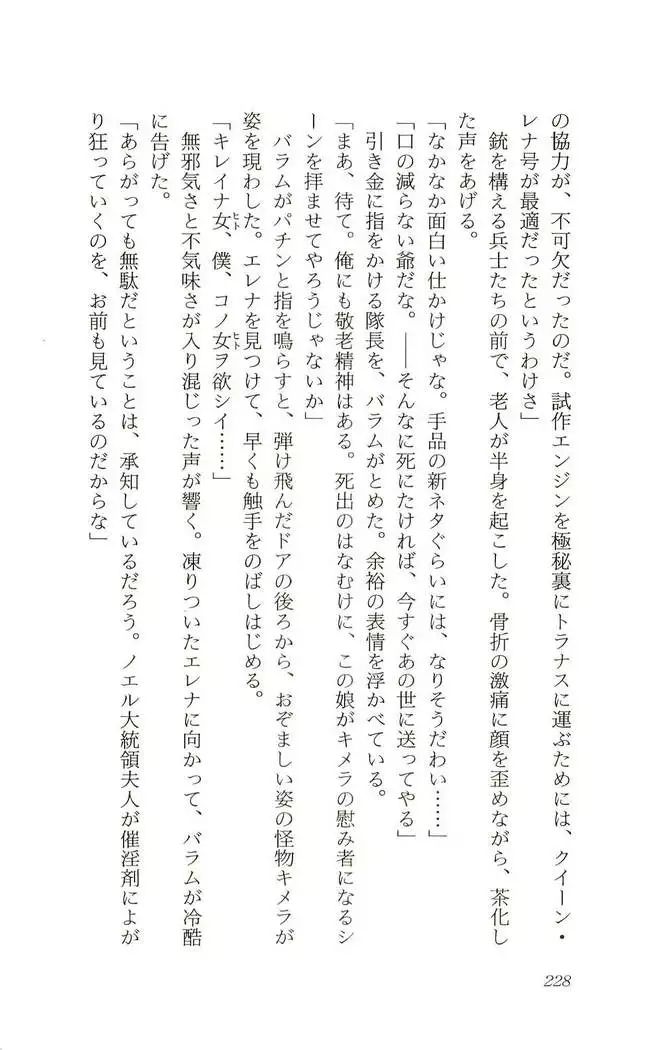 の協力が、不可欠だったのだ。試作エンジンを極秘裏にトラナスに運ぶためには、クイーン・
レナ号が最適だったというわけさ」
　銃を構える兵士たちの前で、老人が半身を起こした。骨折の激痛に顔を歪めながら、茶化し
た声をあげる。
「なかなか面白い仕かけじゃな。手品の新ネタぐらいには、なりそうだわい……」
「口の減らない爺だな。――そんなに死にたければ、今すぐあの世に送ってやる」
　引き金に指をかける隊長を、バラムがとめた。余裕の表情を浮かべている。
「まあ、待て。俺にも敬老精神はある。死出のはなむけに、この娘がキメラの慰み者になるシ
ーンを拝ませてやろうじゃないか」
　バラムがパチンと指を鳴らすと、弾け飛んだドアの後ろから、おぞましい姿の怪物キメラが
姿を現わした。エレナを見つけて、早くも触手をのばしはじめる。
「キレイナ女、僕、コノ女ヲ欲シイ……」
ヒト
ヒト
　無邪気さと不気味さが入り混じった声が響く。凍りついたエレナに向かって、バラムが冷酷
に告げた。
「あらがっても無駄だということは、承知しているだろう。ノエル大統領夫人が催淫剤によが
り狂っていくのを、お前も見ているのだからな」
228